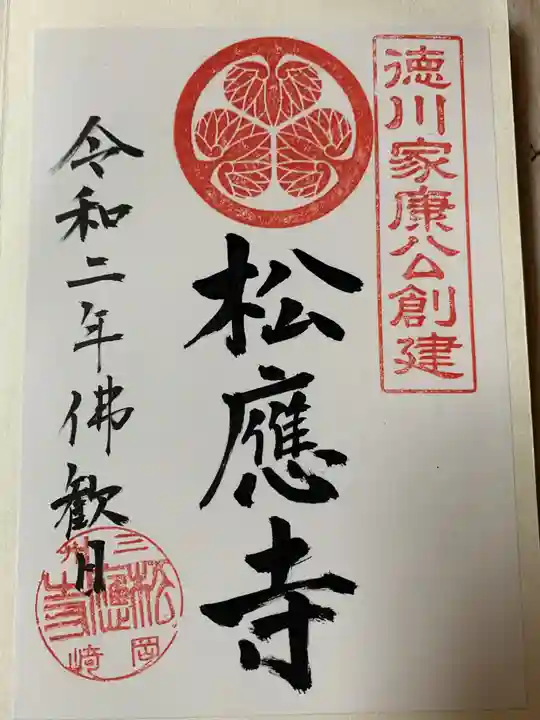 徳川家康公創建
松應寺
令和二年佛歡日
三州
松應寺
岡崎